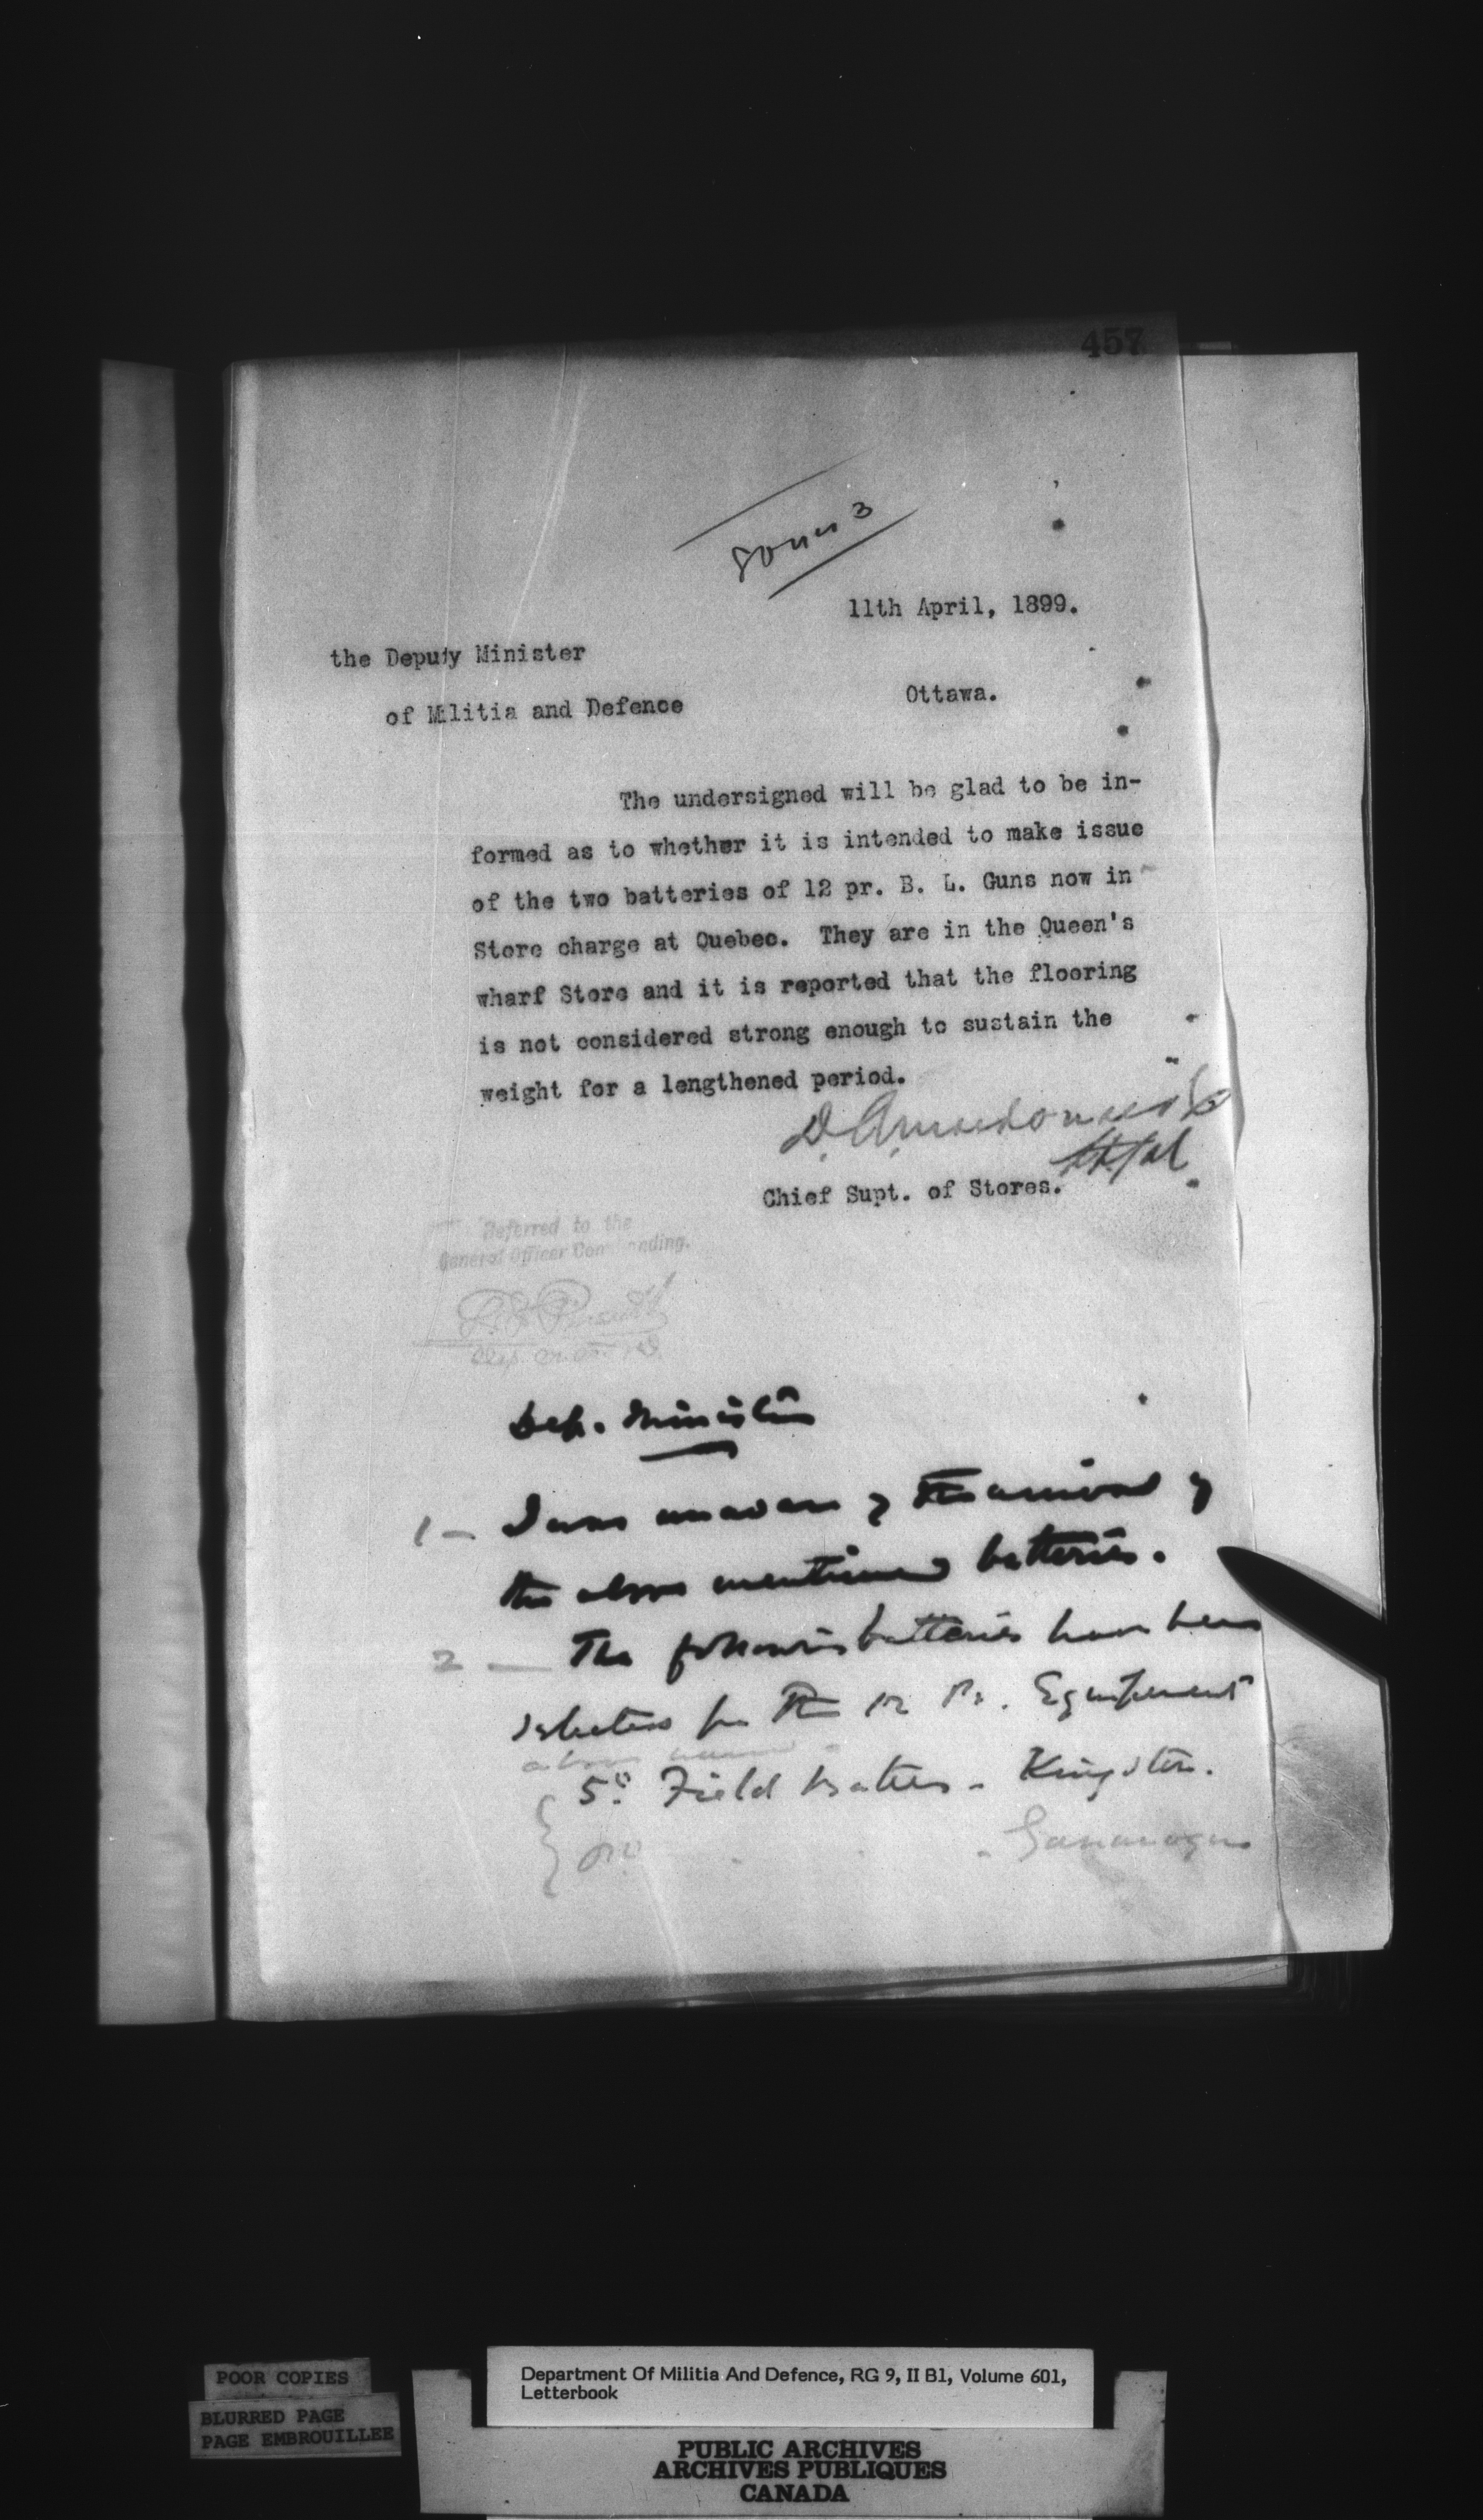 457
11th April, 1899.
the Deputy Minister
of Militia and Defence
Ottawa.
The undersigned will be glad to be in-
formed as to whether it is intended to make issue
of the two batteries of 12 pr. B. L. Guns now in
Store charge at Quebec. They are in the Queen's
wharf Store and it is reported that the flooring
is not considered strong enough to sustain the
weight for a lengthened period.
D. A. Macdonald
Chief Supt. of Stores.
Referred to the
General Officer Commanding.
Dep. Minister
1 - I was unaware of the arrival of
the above mentioned batteries.
2 - The following batteries have been
selected for the 12 Pr. Equipment
above named -
5th Field Battery - Kingston.
- Gananoque
POOR COPIES
BLURRED PAGE
PAGE EMBROUILLEE
Department Of Militia And Defence, RG 9, II B1, Volume 601,
Letterbook
PUBLIC ARCHIVES
ARCHIVES PUBLIQUES
CANADA